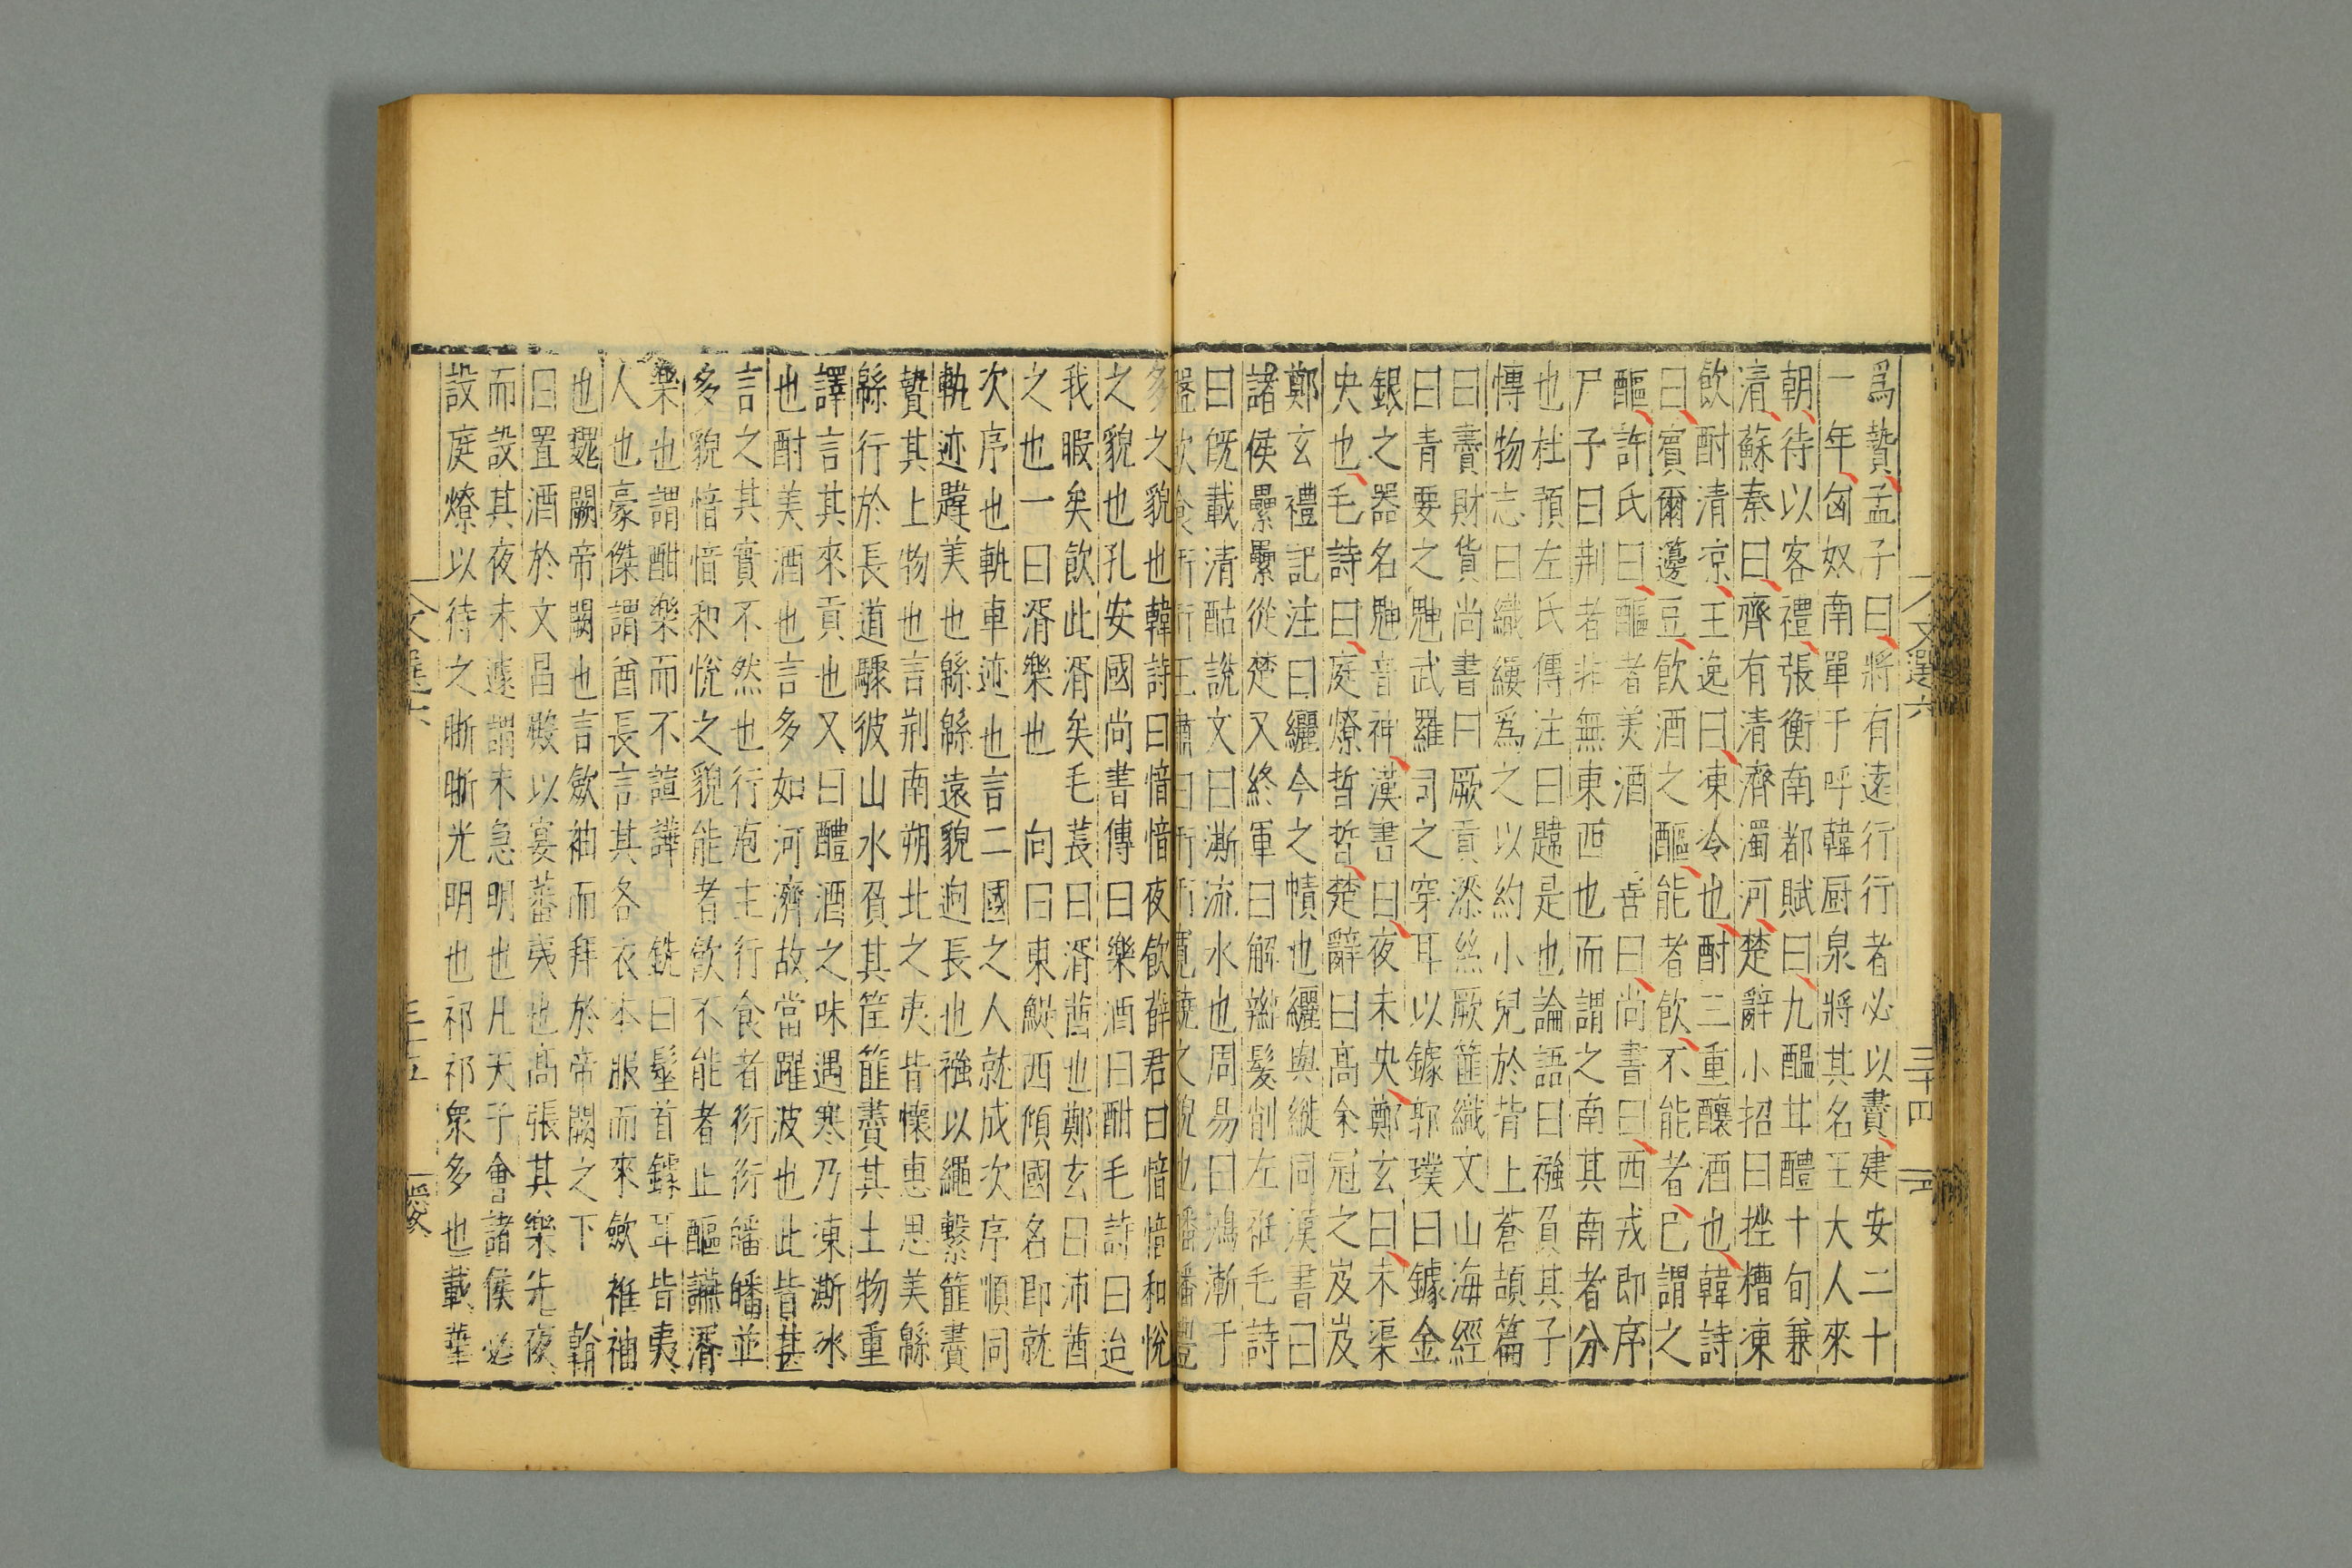 爲贄孟子曰將有遠行行者必以賮建安二十
一年匈奴南單于呼韓厨泉將其名王大人來
朝待以客禮張衡南都賦曰九醞甘醴十旬兼
清蘇秦曰齊有清濟濁河楚辭小招曰挫糟凍
飲酎清凉王逸曰凍冷也酎三重釀酒也韓詩
曰賓爾籩豆飲酒之醧能者飲不能者已謂之
醧許氏曰醧者美酒 善曰尚書曰西戎即序
尸子曰荆者非無東西也而謂之南其南者分
也杜預左氏傳注曰韙是也論語曰襁負其子
慱物志曰織縷爲之以約小兒於背上蒼頡篇
曰賮財貨尚書曰厥貢漆絲厥篚織文山海經
曰青要之䰠武羅司之穿耳以鐻郭璞曰鐻金
銀之器名䰠音神漢書曰夜未央鄭玄曰未渠
央也毛詩曰庭燎晳晳楚辭曰高余冠之岌岌
鄭玄禮記注曰纚今之幘也纚與縰同漢書曰
諸侯纍纍從楚又終軍曰解辮髪削左衽毛詩
曰旣載清酤說文曰澌流水也周易曰鴻漸于
文選六
三十四
多之貌也韓詩曰愔愔夜飲薛君曰愔愔和悅
之貌也孔安國尚書傳曰樂酒曰酣毛詩曰迨
我暇矣飲此湑矣毛萇曰湑茜也鄭玄曰沛酋
之也一曰湑樂也 向曰東鯷西傾國名即就
次序也軌車迹也言二國之人就成次序順同
軌迹韙美也緜緜遠貌逈長也襁以繩繫篚賮
贄其上物也言荆南朔北之夷皆懷惠思美緜
緜行於長道驟彼山水負其筐篚賮其土物重
譯言其來貢也又曰醴酒之味遇寒乃凍澌氷
也酎美酒也言多如河濟故當躍波也此皆甚
言之其實不然也行庖主行食者衎衎皤皤並
多貌愔愔和悅之貌能者飲不能者止醧讌湑
樂也謂酣樂而不諠譁 銑曰髽首鐻耳皆夷
人也豪傑謂酋長言其各衣本服而來斂袵袖
也魏闕帝闕也言斂袖而拜於帝闕之下 翰
曰置酒於文昌殿以宴蕃夷也高張其樂先夜
而設其夜未遽謂未急明也凡天子會諸侯必
設庭燎以待之晣晣光明明也祁祁衆多也載華
文選六
三十五